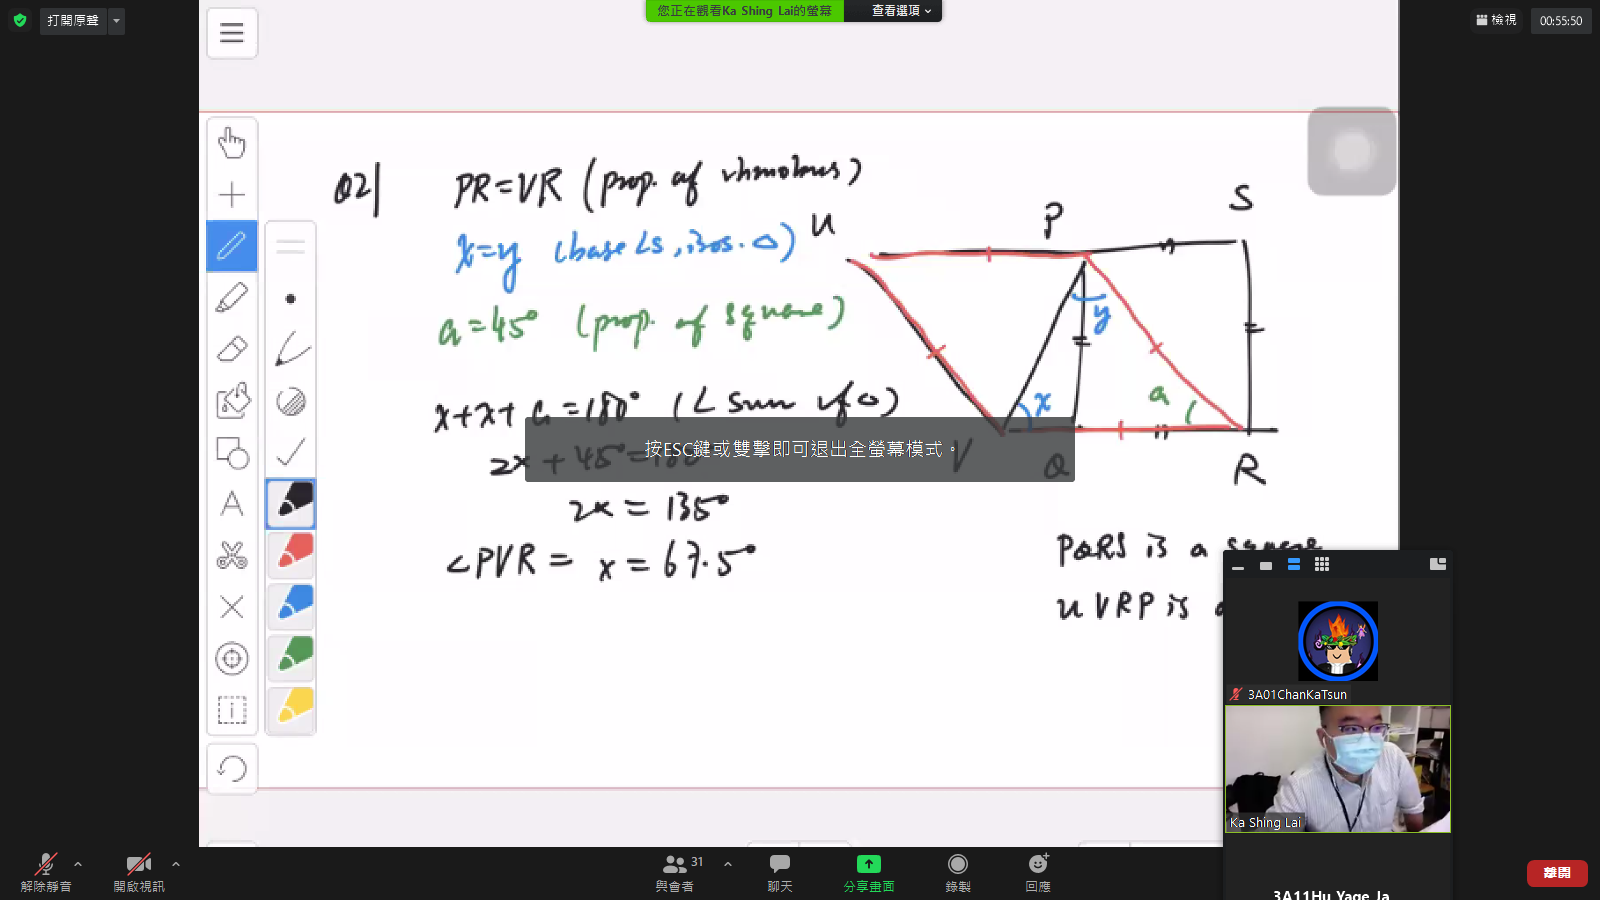 打開原聲
您正在觀看Ka Shing Lai的螢幕
查看選項
檢視
00:55:50
Q2
PR=VR (prop. of rhmobus)
x=y (base ∠s, isos. △)
a=45° (prop. of square)
x+x+a=180° (∠ sum of △)
2x+45°=180°
2x = 135°
∠PVR = x = 67.5°
U
P
S
y
x
a
V
Q
R
按ESC鍵或雙擊即可退出全螢幕模式。
PQRS is a square
UVRP is a
3A01ChanKaTsun
Ka Shing Lai
3A11Hu Yage Ja
解除靜音
開啟視訊
31
與會者
聊天
分享畫面
錄製
回應
離開